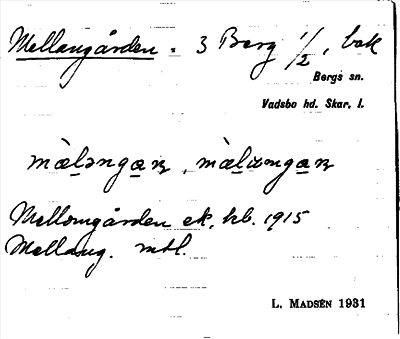 Mellangården. 3 Berg 1/2, bak
Bergs sn.
Vadsbo hd. Skar. l.
mæ̀lənga̱ɳ, mæ̀laŋga̱ɳ
Mellomgården ek. kb. 1915
Mellang. mtl.
L. MADSÉN 1931